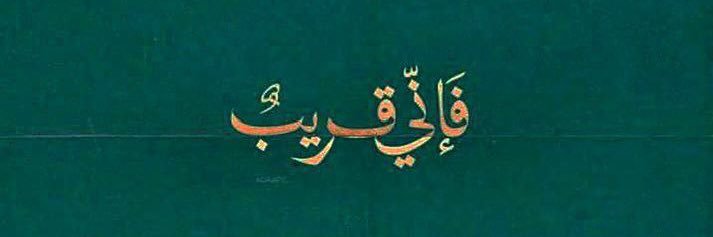 فَإِنّي قريبٌ